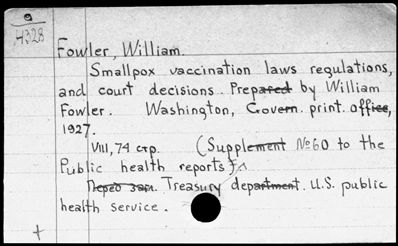 a
H328
Fowler, William.
Smallpox vaccination laws regulations,
and court decisions. Prepared by William
Fowler. Washington, Govern. print. office,
1927.
VIII, 74 стр. (Supplement №60 to the
Public health reports)
Перед заг. Treasury department. U.S. public
health service.